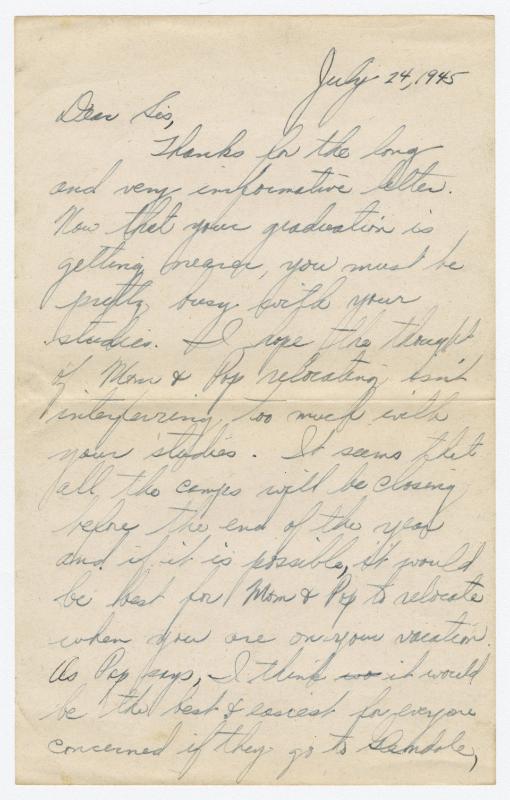 July 24, 1945
Dear Sis,
Thanks for the long
and very informative letter.
Now that your graduation is
getting nearer, you must be
pretty busy with your
studies. I hope the thought
of Mom & Pop relocating isn't
interferring too much with
your studies. It seems that
all the camps will be closing
before the end of the year
and if it is possible, it would
be best for Mom & Pop to relocate
when you are on your vacation.
As Pop says, I think it would
be the best & easiest for everyone
concerned if they go to